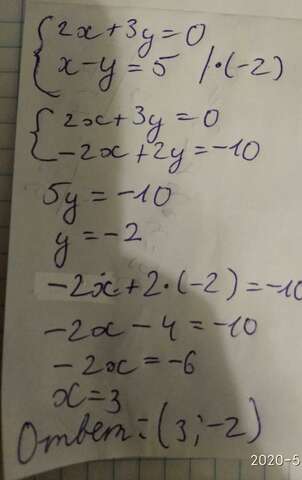 2x+3y=0
x-y=5 /·(-2)
2x+3y=0
-2x+2y=-10
5y=-10
y=-2
-2x+2·(-2)=-10
-2x-4=-10
-2x=-6
x=3
Ответ: (3;-2)
2020-5